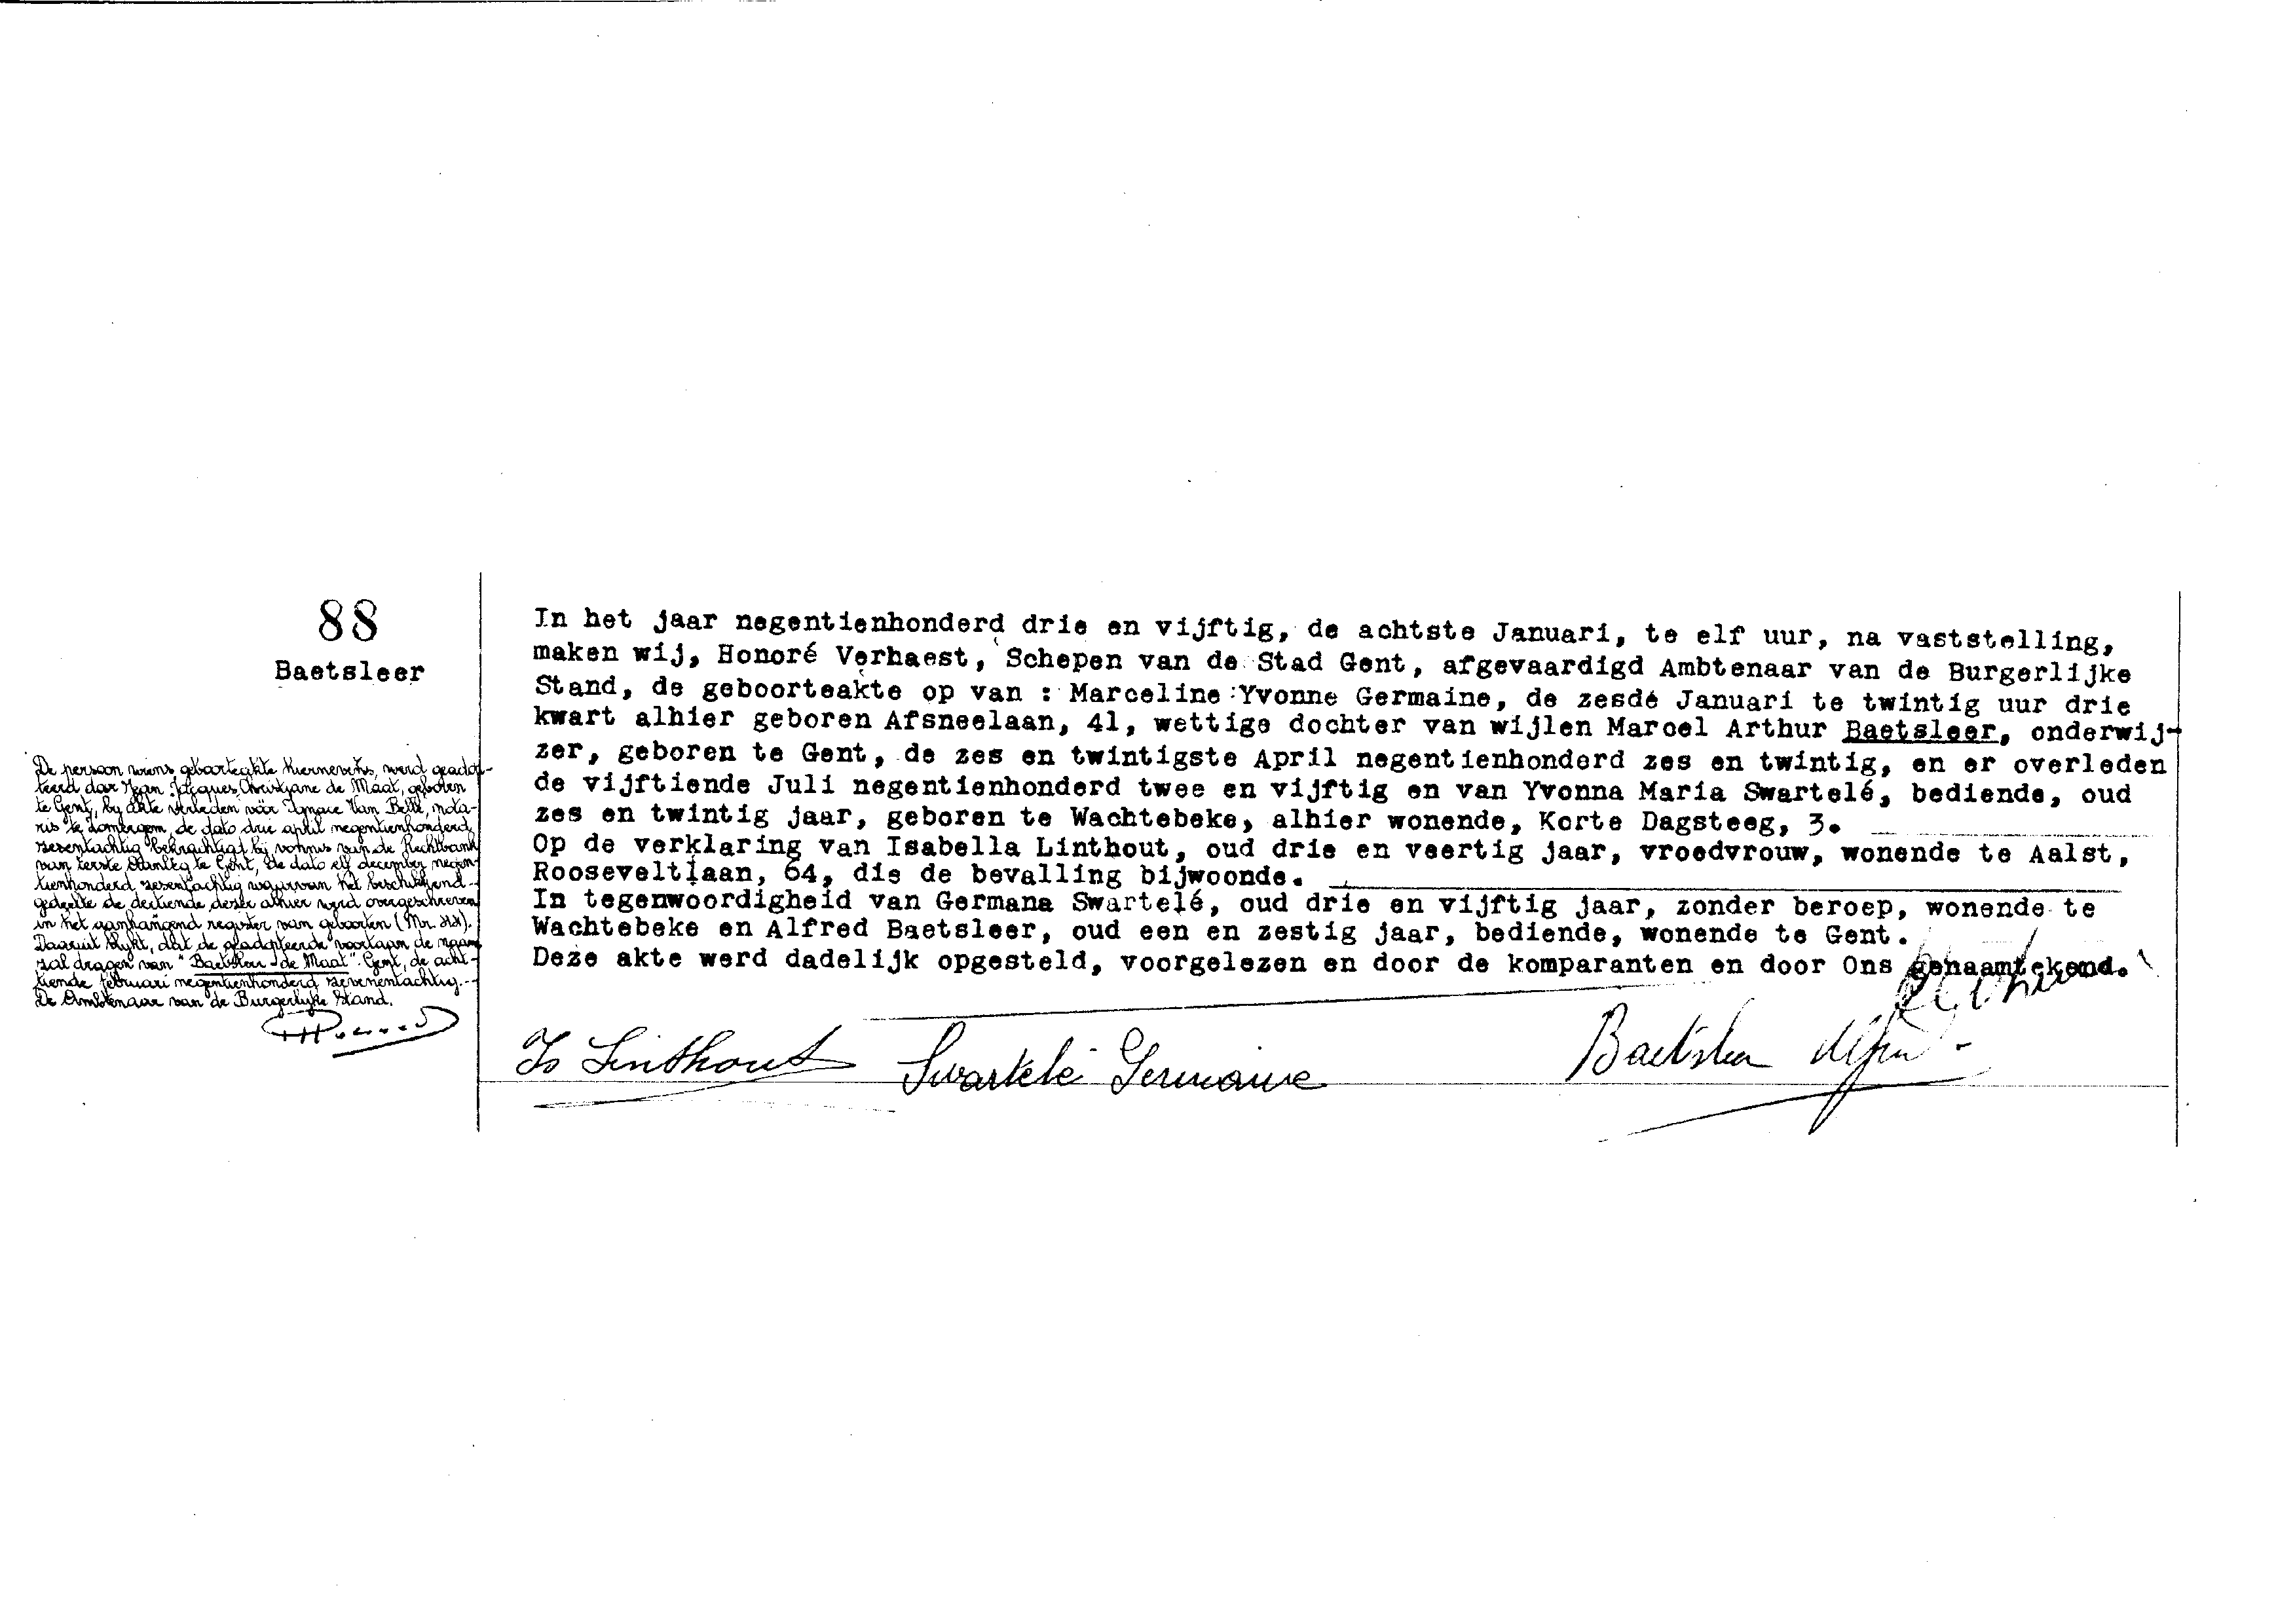 88
Baetsleer
De persoon wiens geboorteakte hiernevens, werd geadop-
teerd door Jean Jacques Christiane de Maat, geboren
te Gent, by akte verleden vóór Ignace Van Belle, nota-
ris te Lomergem, de dato drie april negentienhonderd
zesentachtig bekrachtigd bij vonnis van de Rechtbank
van eerste Aanleg te Gent, de dato elf december negen-
tienhonderd zesentachtig waarvan het beschikkend
gedeelte de dertiende dezer alhier werd overgeschreven
in het aanhangend register van geboorten (Nr.
Daaruit blykt, dat de geadopteerde voortaan de naam
zal dragen van "Baetsleer - de Maat". Gent, de acht-
tiende februari negentienhonderd zevenentachtig.
De Ambtenaar van de Burgerlyke Stand.
In het jaar negentienhonderd drie en vijftig, de achtste Januari, te elf uur, na vaststelling,
maken wij, Honoré Verhaest, Schepen van de Stad Gent, afgevaardigd Ambtenaar van de Burgerlijke
Stand, de geboorteakte op van : Marceline Yvonne Germaine, de zesde Januari te twintig uur drie
kwart alhier geboren Afsneelaan, 41, wettige dochter van wijlen Marcel Arthur Baetsleer, onderwij-
zer, geboren te Gent, de zes en twintigste April negentienhonderd zes en twintig, en er overleden
de vijftiende Juli negentienhonderd twee en vijftig en van Yvonna Maria Swartelé, bediende, oud
zes en twintig jaar, geboren te Wachtebeke, alhier wonende, Korte Dagsteeg, 3.
Op de verklaring van Isabella Linthout, oud drie en veertig jaar, vroedvrouw, wonende te Aalst,
Rooseveltlaan, 64, die de bevalling bijwoonde.
In tegenwoordigheid van Germana Swartelé, oud drie en vijftig jaar, zonder beroep, wonende te
Wachtebeke en Alfred Baetsleer, oud een en zestig jaar, bediende, wonende te Gent.
Deze akte werd dadelijk opgesteld, voorgelezen en door de komparanten en door Ons genaamtekend.
Is Linthout Swartelé Germaine Baetsleer Alfred